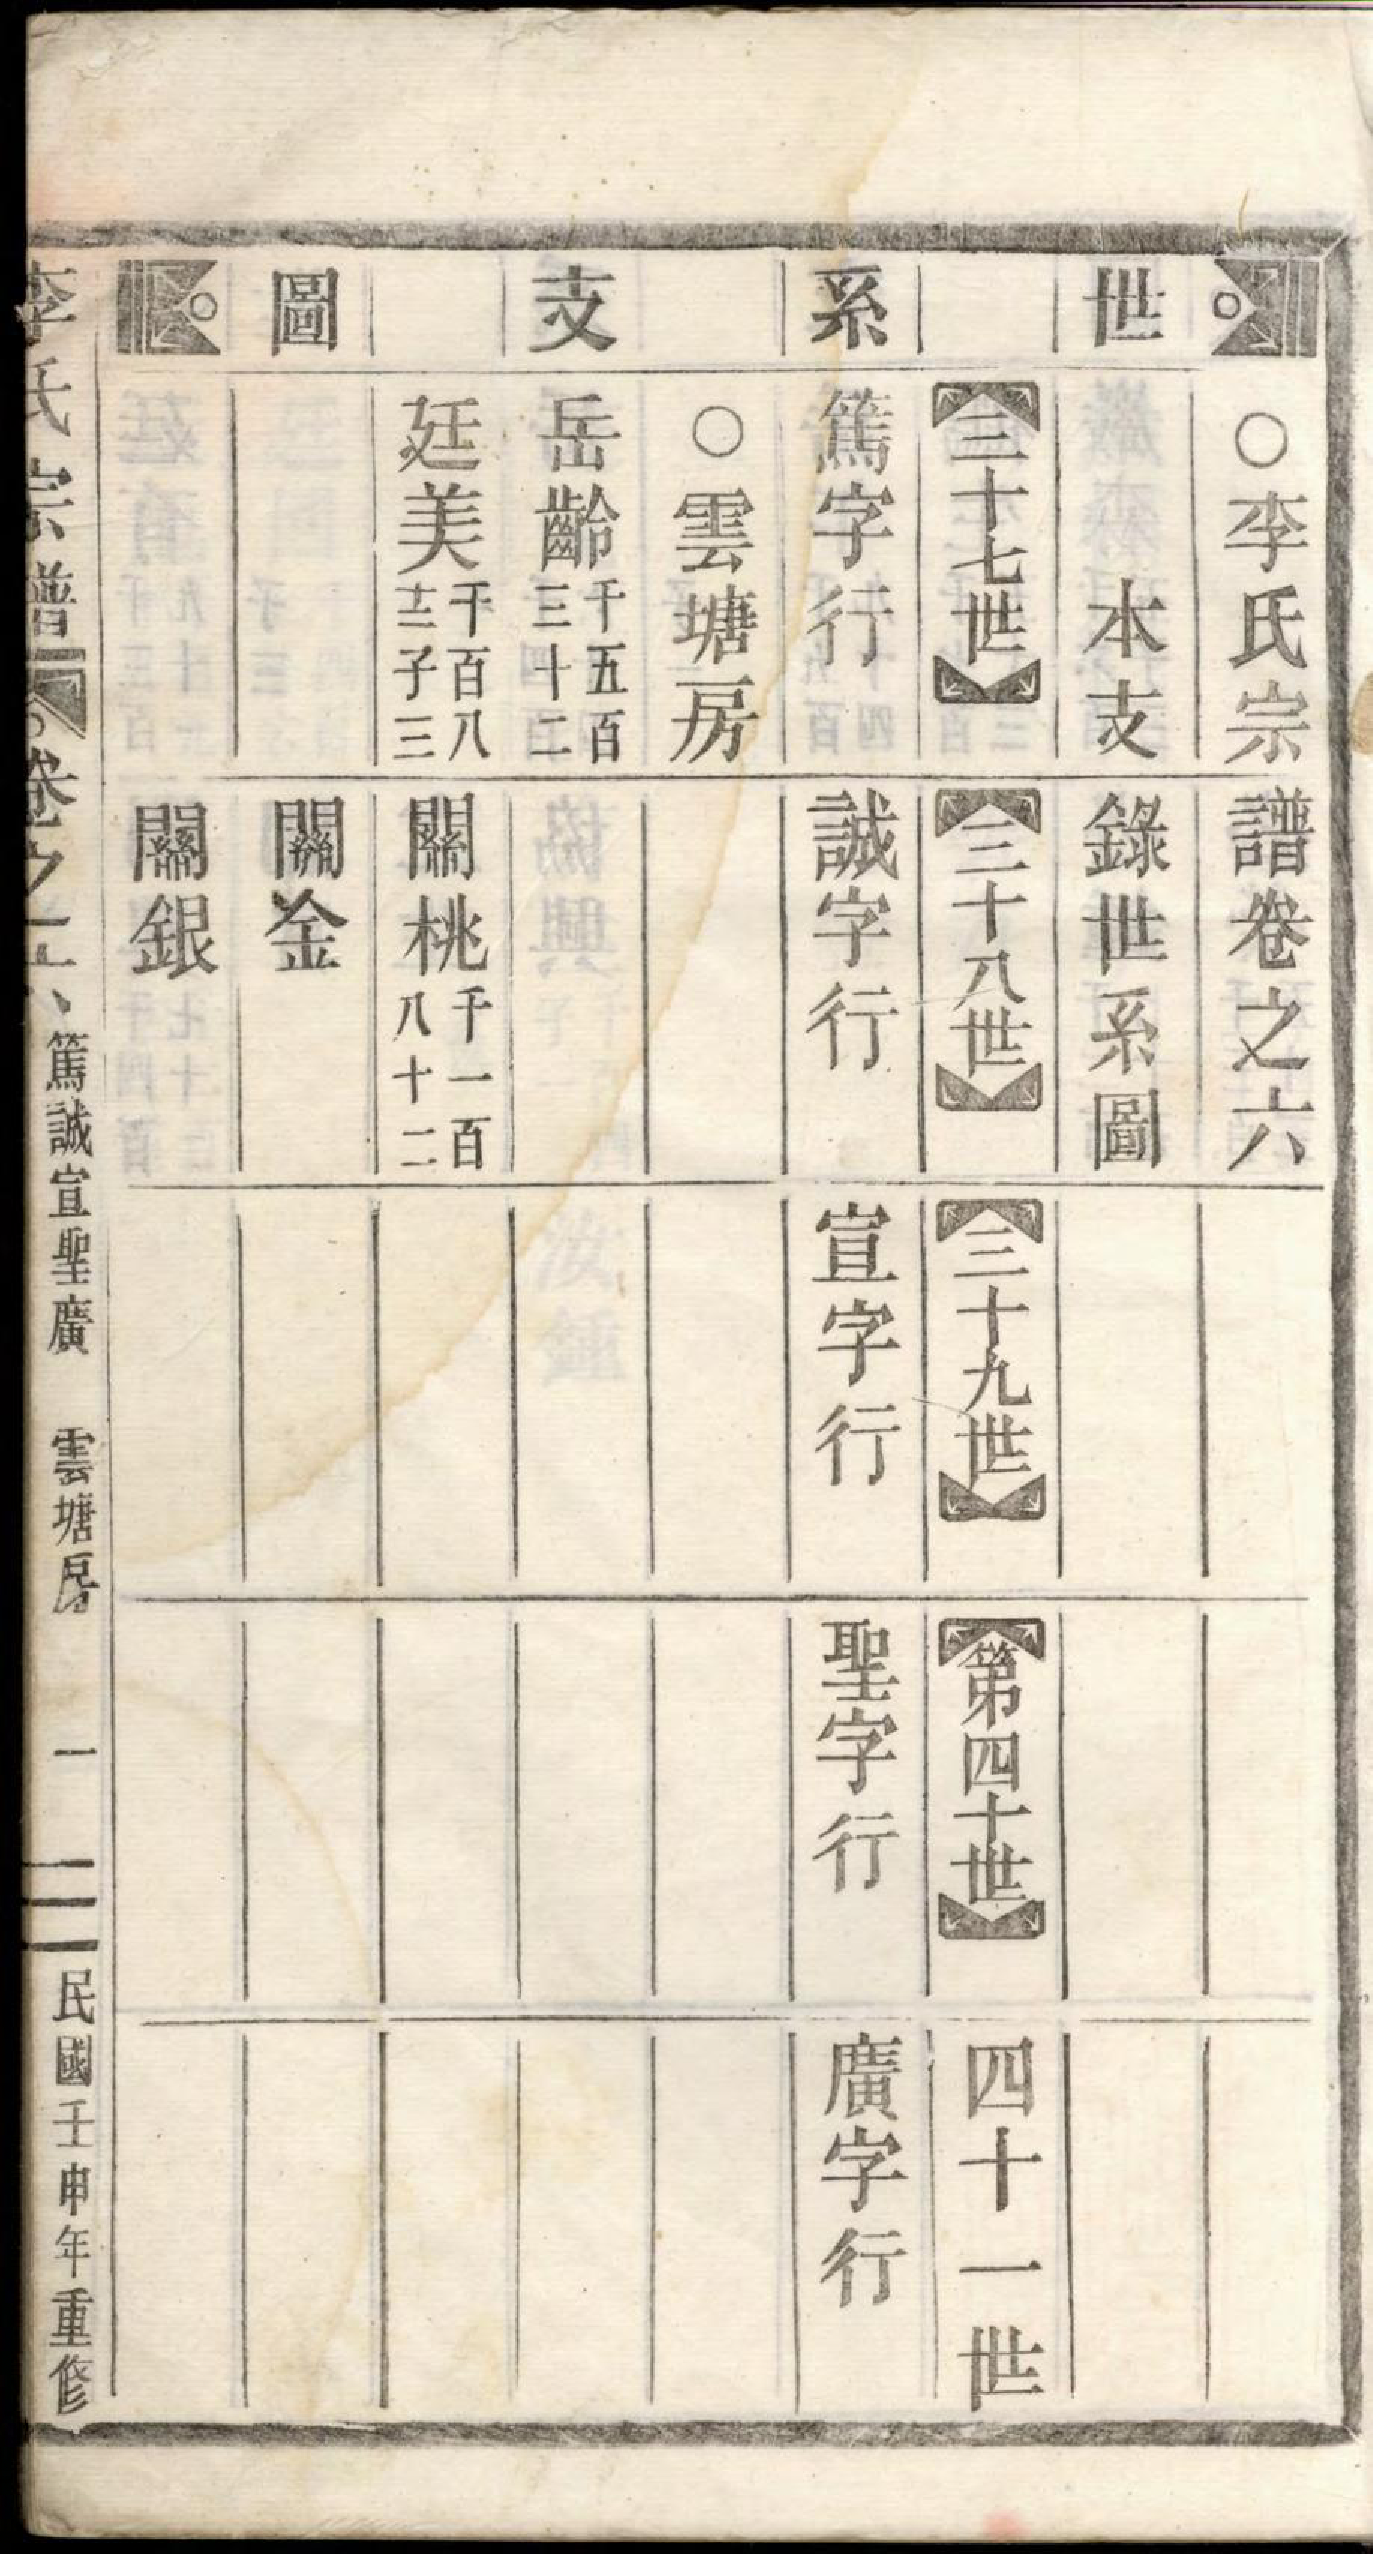 世系支圖
○李氏宗譜卷之六
本支錄世系圖
三十七世
三十八世
三十九世
第四十世
四十一世
篤字行
誠字行
宣字行
聖字行
廣字行
○雲塘房
岳齡 千五百三十二
廷美 千百八十二子三
關桃 千一百八十二
關金
關銀
李氏宗譜 卷之六 篤誠宣聖廣 雲塘房 一 民國壬申年重修